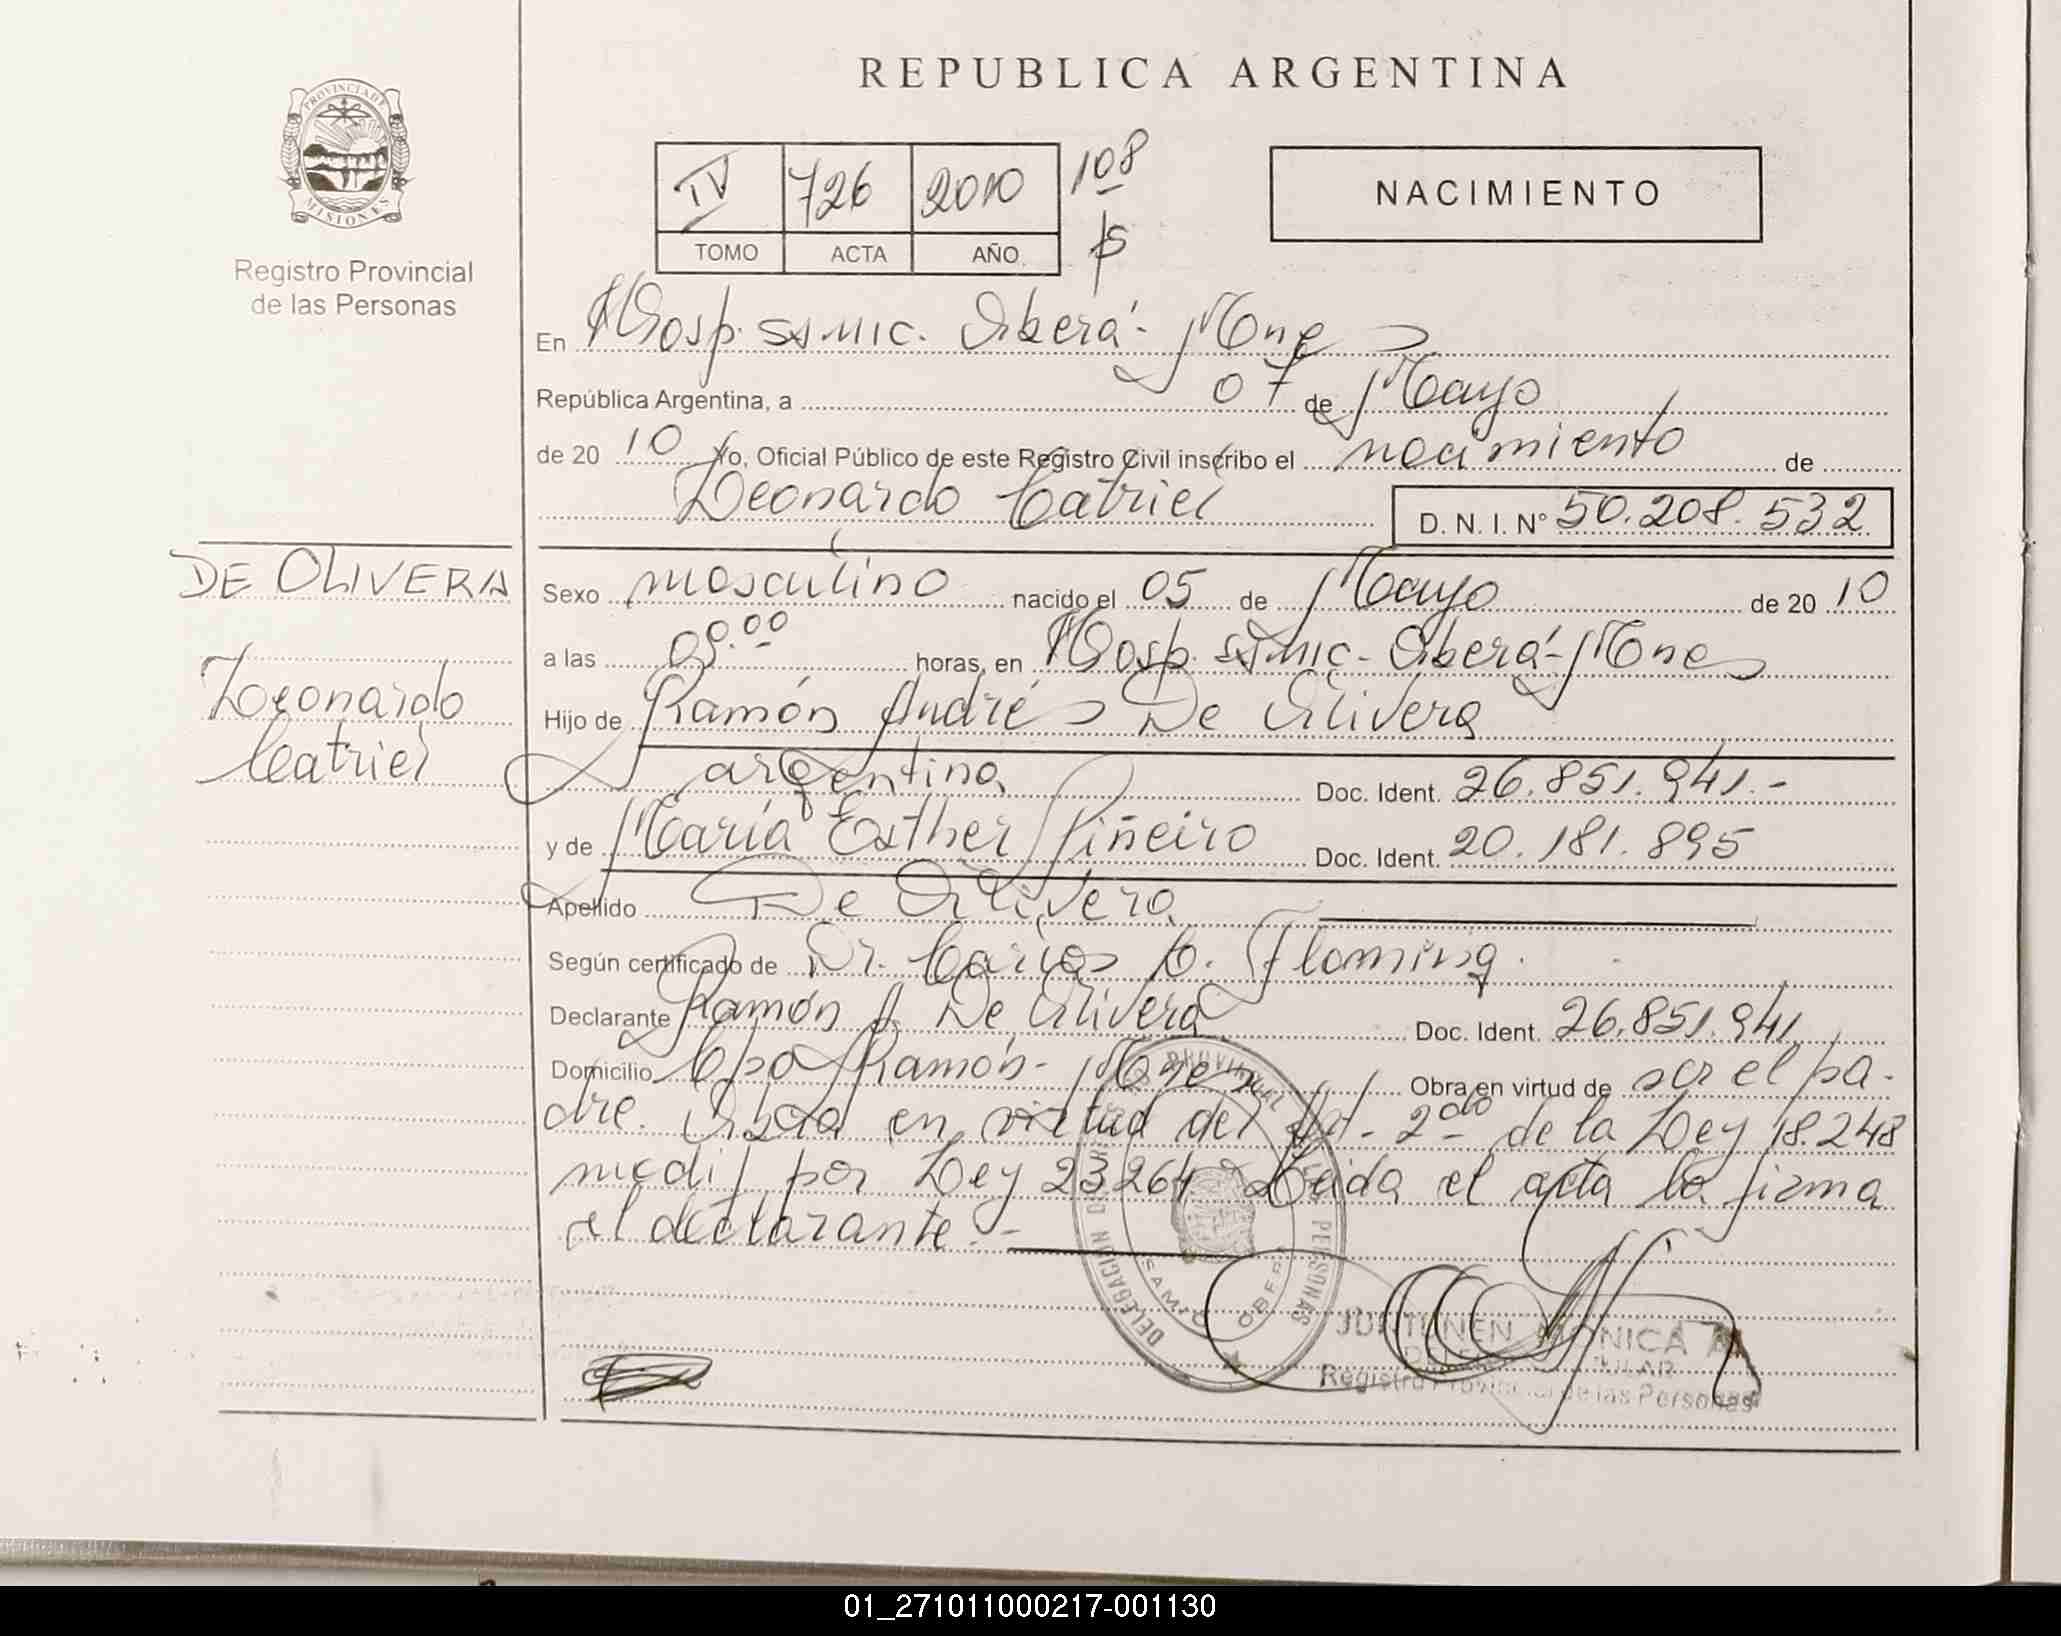 REPUBLICA ARGENTINA
PROVINCIA DE
MISIONES
Registro Provincial
de las Personas
IV 726 2010 108
TOMO ACTA AÑO
NACIMIENTO
En Hosp. SAMIC. Oberá - Mnes
República Argentina, a 07 de Mayo
de 20 10 Yo, Oficial Público de este Registro Civil inscribo el nacimiento de
Leonardo Catriel D. N. I. N° 50.208.532
DE OLIVERA
Leonardo
Catriel
Sexo masculino nacido el 05 de Mayo de 20 10
a las horas, en Hosp. SAMIC - Oberá - Mnes
Hijo de Ramón Andrés De Olivera
argentina Doc. Ident. 26.851.941.-
y de María Esther Piñeiro Doc. Ident. 20.181.895
Apellido De Olivera
Según certificado de Dr. Carlos Fleming.
Declarante Ramón A. De Olivera Doc. Ident. 26.851.941
Domicilio Cpo Ramón - Mnes Obra en virtud de ser el pa-
dre. Obra en virtud del Art. 2do de la Ley 18.248
modif por Ley 23264 Leida el acta la firma
el declarante.-
DELEGACION PROVINCIAL PERSONAS
SAMIC OBERA
MONICA
Registro Provincial de las Personas
01_271011000217-001130